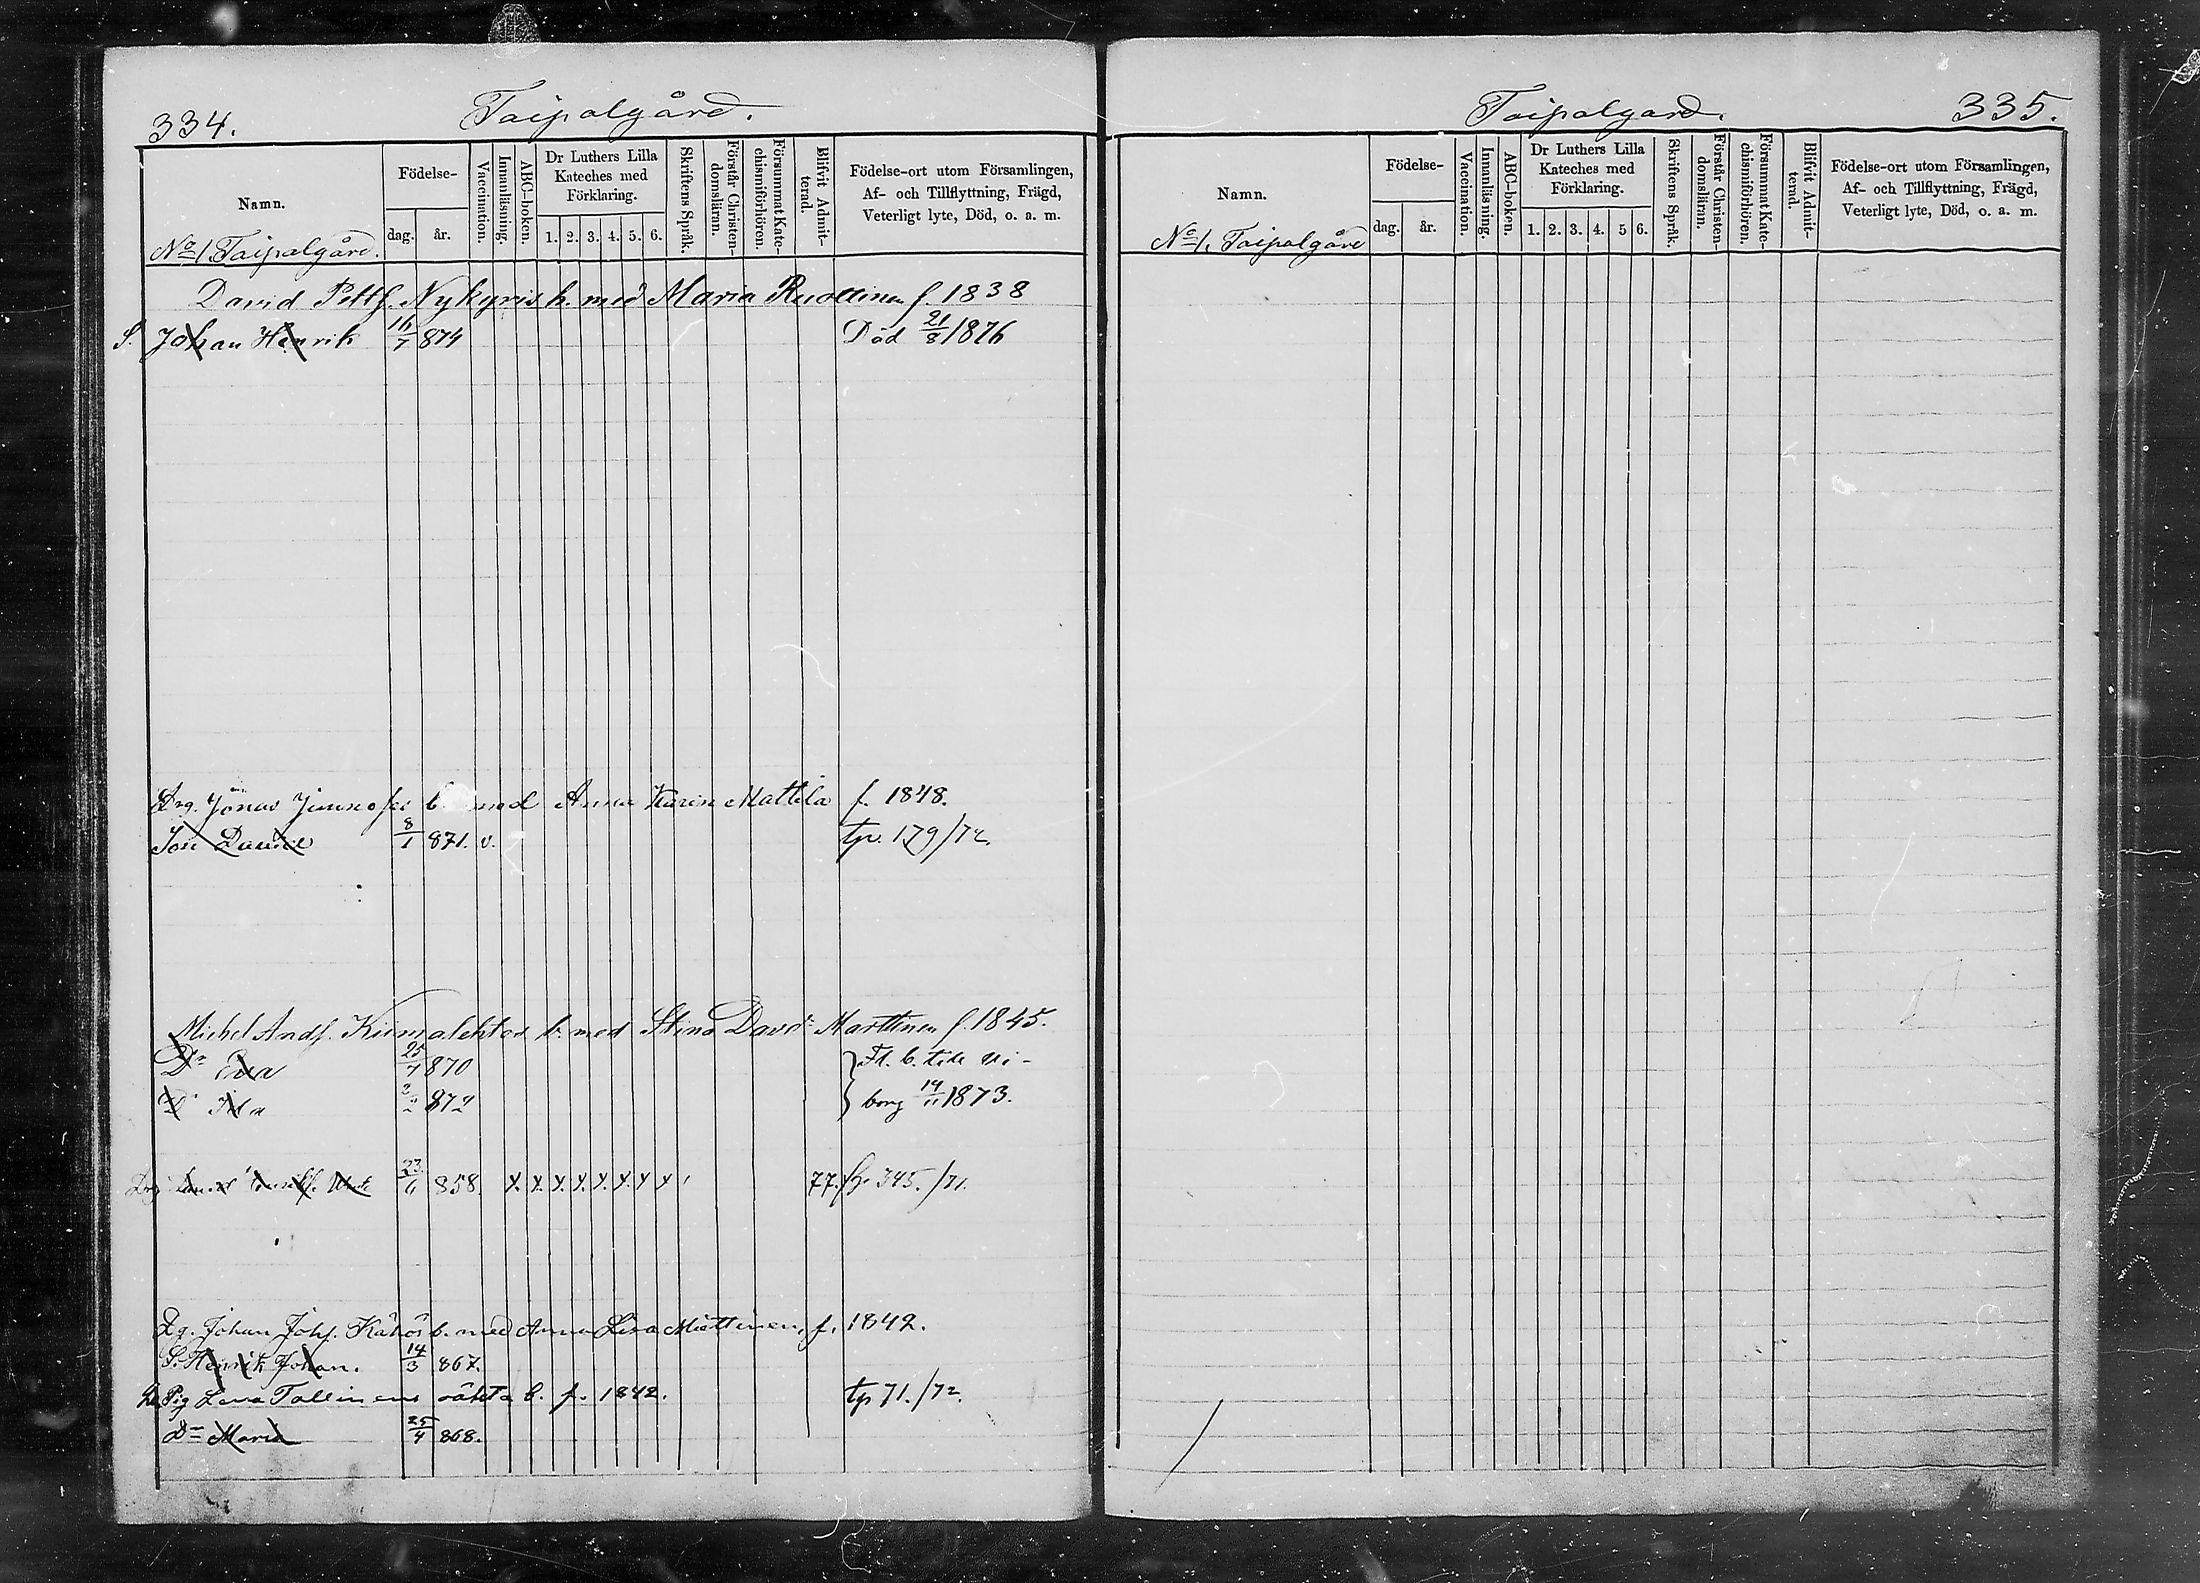 334.
Taipalgård.
Namn.
Födelse-
dag.
år.
Vaccination.
Innanläsning.
ABC-boken.
Dr Luthers Lilla
Kateches med
Förklaring.
1. 2. 3. 4. 5. 6.
Skriftens Språk.
Förstår Christen-
domsläran.
Försummat Kate-
chismiförhören.
Blifvit Admit-
terad.
Födelse-ort utom Församlingen,
Af- och Tillflyttning, Frägd,
Veterligt lyte, Död, o. a. m.
No 1 Taipalgård.
David Pettf. Nykyris h. med Maria Ruottinen f. 1838
S. Johan Henrik 16/7 874 Död 21/8 1876
Drg. Jönus b. med Anna Karin Mattila f. 1848.
Son Daniel 8/1 871. v. tp. 179/72.
Michel Andf. Kiimalehto b. med Stina Davd. Marttinen f. 1845.
Dr Eva 25/7 870 Fl. b. till Wi-
D Ida 2/2 872 borg 14/11 1873.
23/6 858. x. x. x. x. x. x. x x 77. 345./71.
Johan Johf. Kähös b. med Anna Lisa Miettinen, f. 1842.
S. Henrik Johan. 14/3 867.
Pig Lena Tallinens oäkta b. f. 1842. tp 71./72.
Dr Maria 25/4 868.
Taipalgard.
335.
Namn.
Födelse-
dag.
år.
Vaccination.
Innanläsning.
ABC-boken.
Dr Luthers Lilla
Kateches med
Förklaring.
1. 2. 3. 4. 5 6.
Skriftens Språk.
Förstår Christen-
domsläran.
Försummat Kate-
chismiförhören.
Blifvit Admit-
terad.
Födelse-ort utom Församlingen,
Af- och Tillflyttning, Frägd,
Veterligt lyte, Död, o. a. m.
No 1. Taipalgård